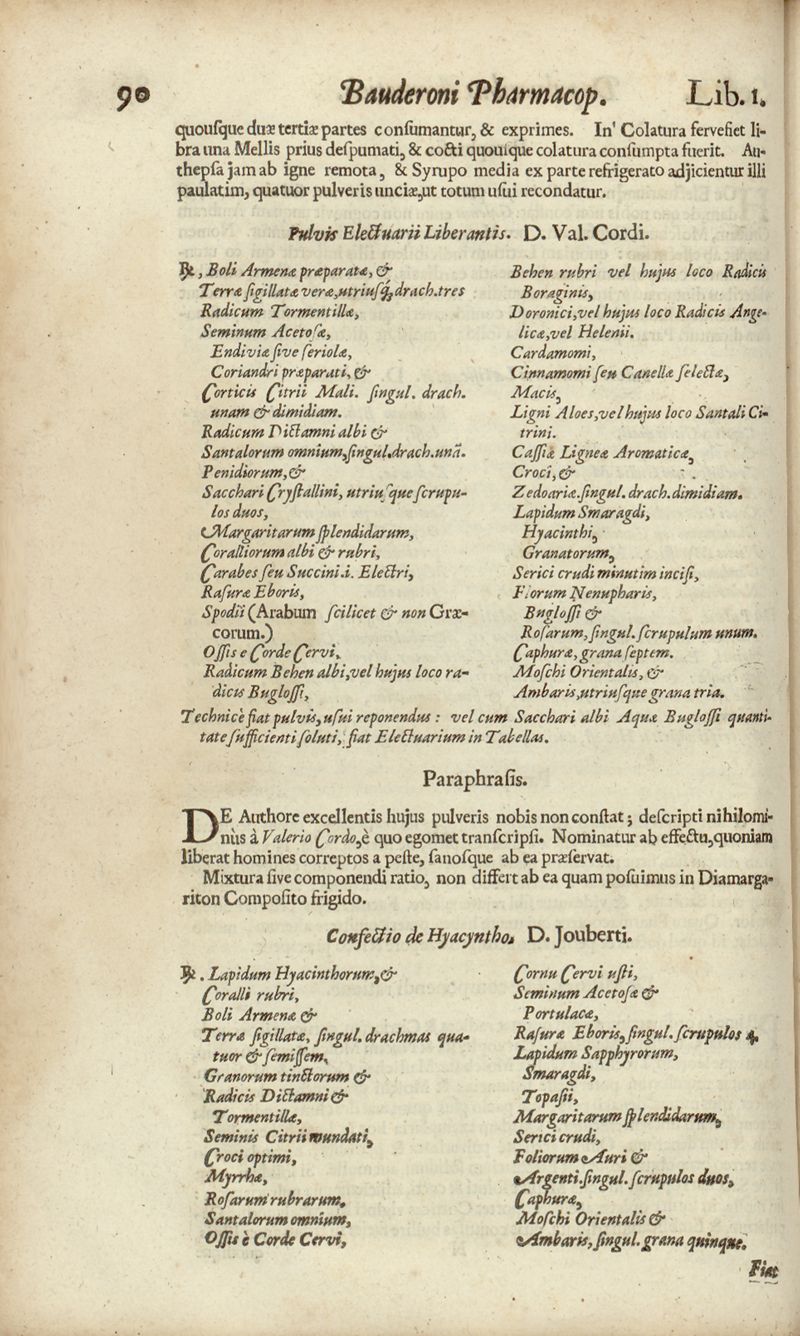 90 Bauderoni Pharmacop. Lib. 1.
quouſque duæ tertiæ partes conſumantur, & exprimes. In' Colatura fervefiet li-
bra una Mellis prius deſpumati, & cocti quouſque colatura conſumpta fuerit. Au-
thepſa jam ab igne remota, & Syrupo media ex parte refrigerato adjicientur illi
paulatim, quatuor pulveris unciæ, ut totum uſui recondatur.
Pulvis Electuarii Liberantis. D. Val. Cordi.
℞, Boli Armenæ præparatæ, &
Terræ ſigillatæ veræ, utriuſq; drach. tres
Radicum Tormentillæ,
Seminum Acetoſæ,
Endiviæ ſive ſeriolæ,
Coriandri præparati, &
Corticis Citrii Mali. ſingul. drach.
unam & dimidiam.
Radicum Dictamni albi &
Santalorum omnium, ſingul. drach. unā.
Penidiorum, &
Sacchari Cryſtallini, utriuſque ſcrupu-
los duos,
Margaritarum ſplendidarum,
Coralliorum albi & rubri,
Carabes ſeu Succini .i. Electri,
Raſuræ Eboris,
Spodii (Arabum ſcilicet & non Græ-
corum.)
Oſſis e Corde Cervi,
Radicum Behen albi, vel hujus loco ra-
dicis Bugloſſi,
Behen rubri vel hujus loco Radicis
Boraginis,
Doronici, vel hujus loco Radicis Ange-
licæ, vel Helenii.
Cardamomi,
Cinnamomi ſeu Canellæ ſelectæ,
Macis,
Ligni Aloes, vel hujus loco Santali Ci-
trini.
Caſſiæ Ligneæ Aromaticæ,
Croci, &
Zedoariæ. ſingul. drach. dimidiam.
Lapidum Smaragdi,
Hyacinthi,
Granatorum,
Serici crudi minutim inciſi,
Florum Nenupharis,
Bugloſſi &
Roſarum, ſingul. ſcrupulum unum.
Caphuræ, grana ſeptem.
Moſchi Orientalis, &
Ambaris, utriuſque grana tria.
Technicè fiat pulvis, uſui reponendus : vel cum Sacchari albi Aquæ Bugloſſi quanti-
tate ſufficienti ſoluti, fiat Electuarium in Tabellas.
Paraphraſis.
DE Authore excellentis hujus pulveris nobis non conſtat; deſcripti nihilomi-
nùs à Valerio Cordo, è quo egomet tranſcripſi. Nominatur ab effectu, quoniam
liberat homines correptos a peſte, ſanoſque ab ea præſervat.
Mixtura ſive componendi ratio, non differt ab ea quam poſuimus in Diamarga-
riton Compoſito frigido.
Confectio de Hyacyntho. D. Jouberti.
℞. Lapidum Hyacinthorum, &
Coralli rubri,
Boli Armenæ &
Terræ ſigillatæ, ſingul. drachmas qua-
tuor & ſemiſſem,
Granorum tinctorum &
Radicis Dictamni &
Tormentillæ,
Seminis Citrii mundati,
Croci optimi,
Myrrhæ,
Roſarum rubrarum,
Santalorum omnium,
Oſſis è Corde Cervi,
Cornu Cervi uſti,
Seminum Acetoſæ &
Portulacæ,
Raſuræ Eboris, ſingul. ſcrupulos 4.
Lapidum Sapphyrorum,
Smaragdi,
Topaſii,
Margaritarum ſplendidarum,
Serici crudi,
Foliorum Auri &
Argenti. ſingul. ſcrupulos duos,
Caphuræ,
Moſchi Orientalis &
Ambaris, ſingul. grana quinque.
Fiat